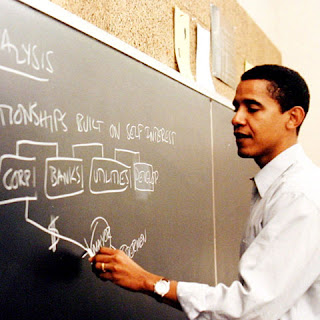 ALYSIS
TIONSHIPS BUILT ON SELF INTEREST
CORP BANKS UTILITIES
$